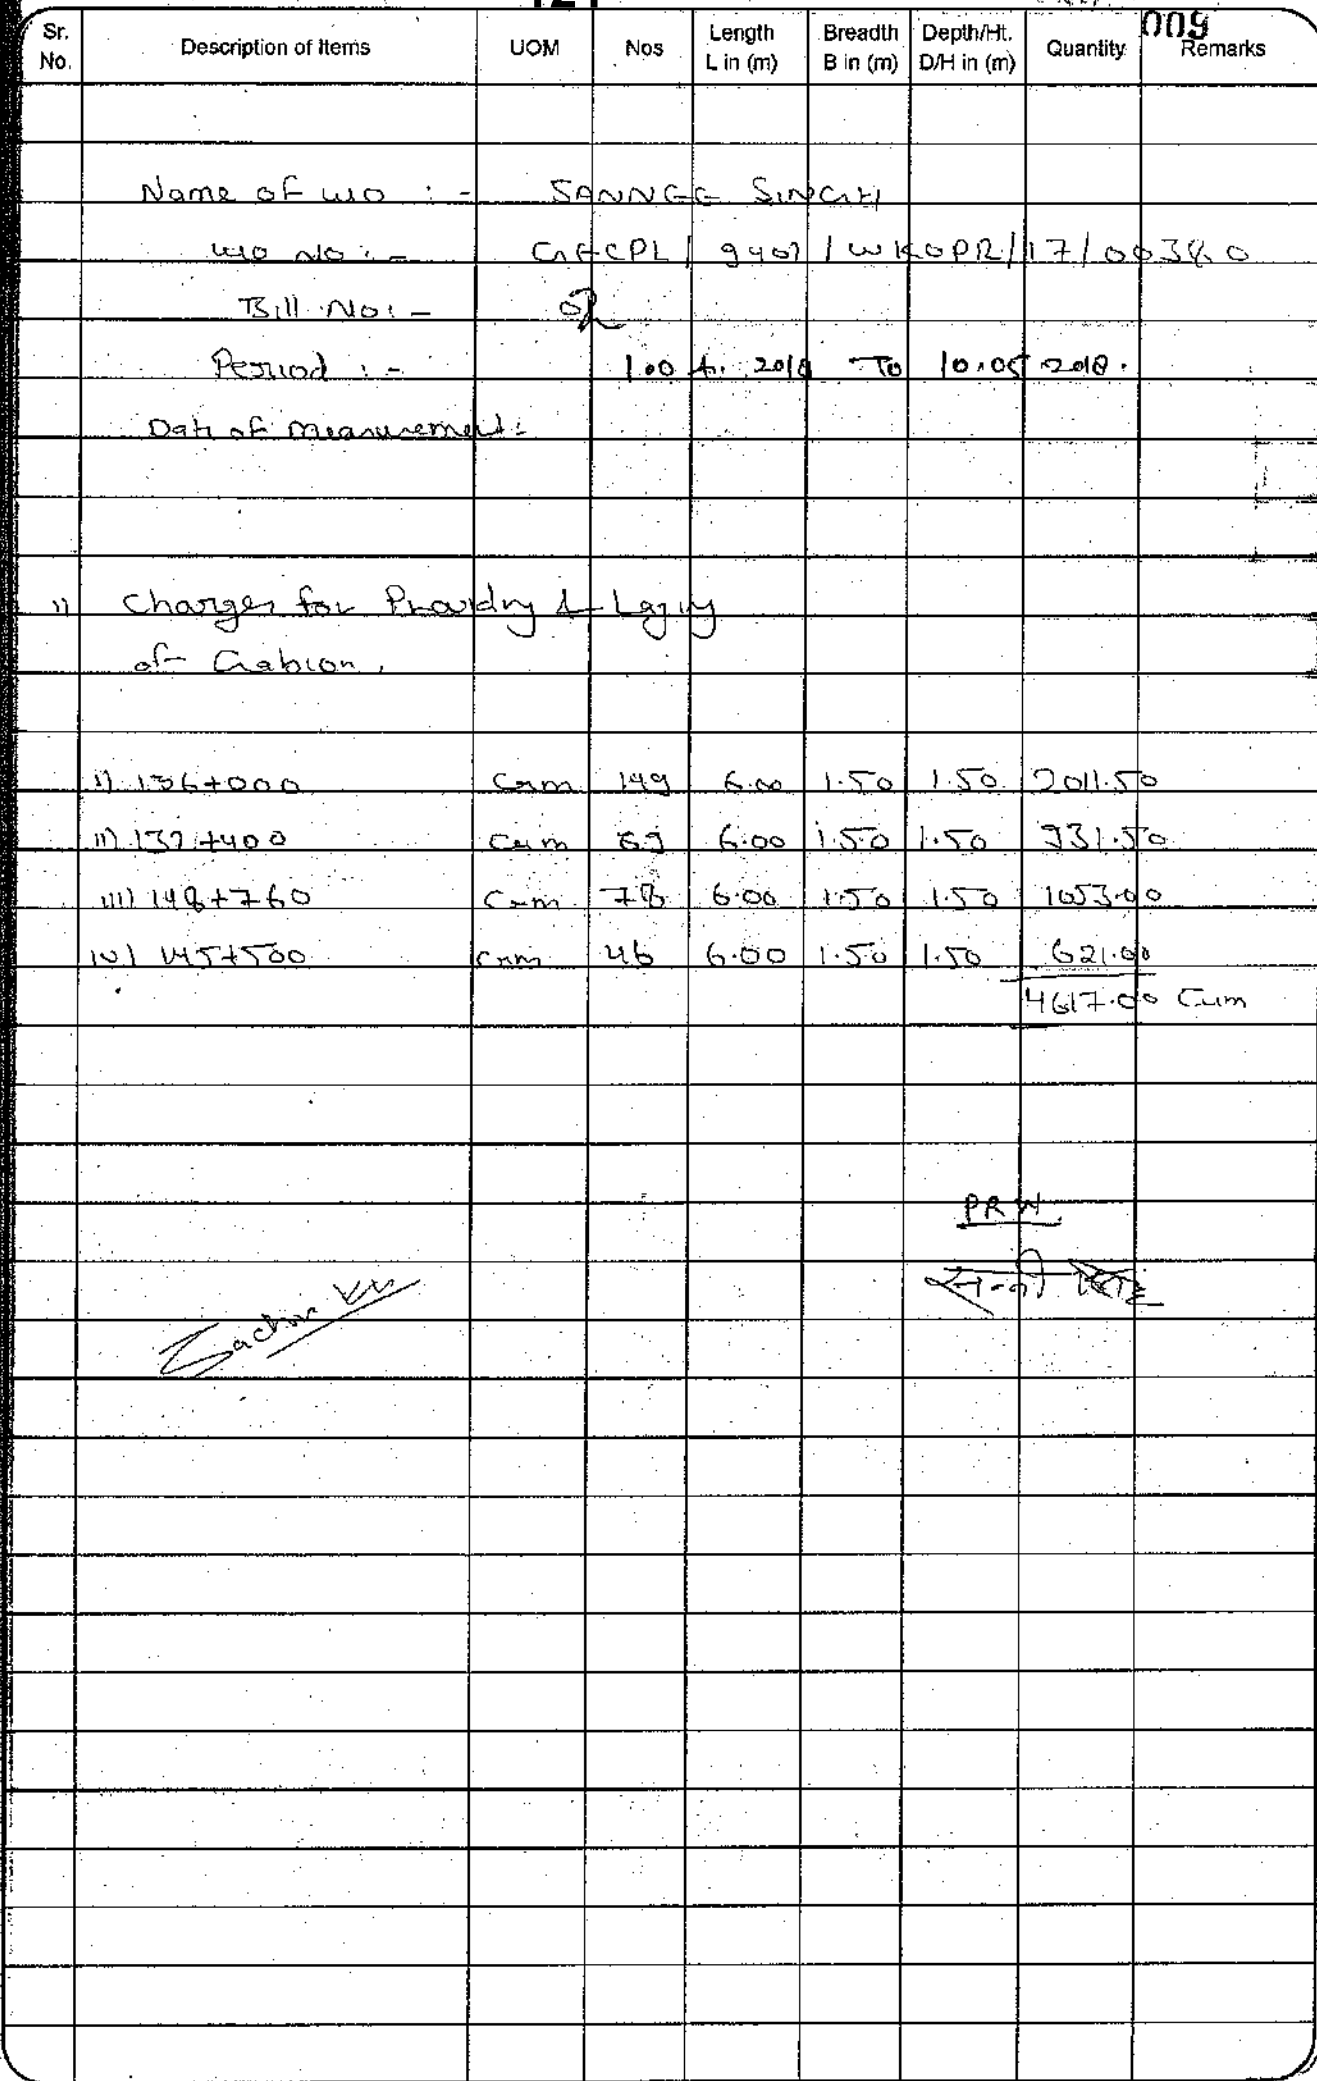 009
Sr. No. Description of Items UOM Nos Length L in (m) Breadth B in (m) Depth/Ht. D/H in (m) Quantity Remarks
Name of WO :- SANNEE SINGH
WO No :- GECPL / 9401 / WKOPR/17/00380
Bill No:- 02
Period :- 2018 To 10.05.2018.
Date of Measurement:
1) Charges for Providing & Laying
of Gabion.
i) 136+000 Cum 149 6.00 1.50 1.50 2011.50
ii) 137+400 Cum 69 6.00 1.50 1.50 931.50
iii) 148+760 Cum 78 6.00 1.50 1.50 1053.00
iv) 145+500 Cum 46 6.00 1.50 1.50 621.00
4617.00 Cum
PRW
सन्नी सिंह
Sachin